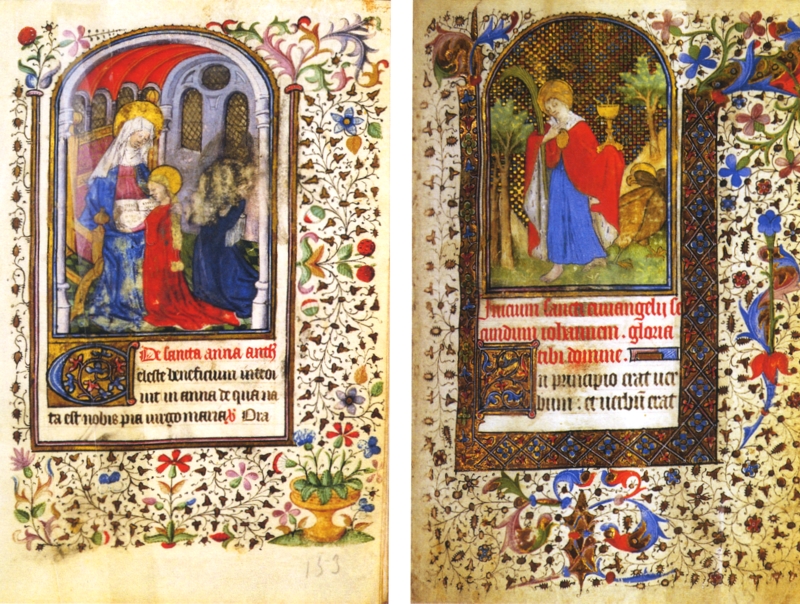 De sancta anna anth
Celeste beneficium introi
uit in anna de qua na
ta est nobis pia virgo maria. Ora
153
Inicium sancti euuangelij se
cundum iohannem. gloria
tibi domine.
In principio erat uer
bum: et uerbū erat